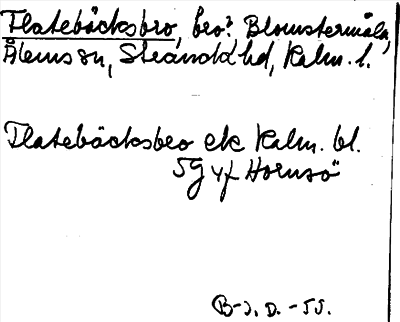 Flatebäcksbro, bro?, Blomstermåla,
Ålems sn, Stranda hd, Kalm. l.
Flatebäcksbro ek Kalm. bl.
5g vf Hornsö
B-J. D. -55.